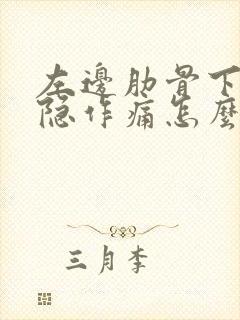 左邊肋骨下
隐作痛怎麼
三月李